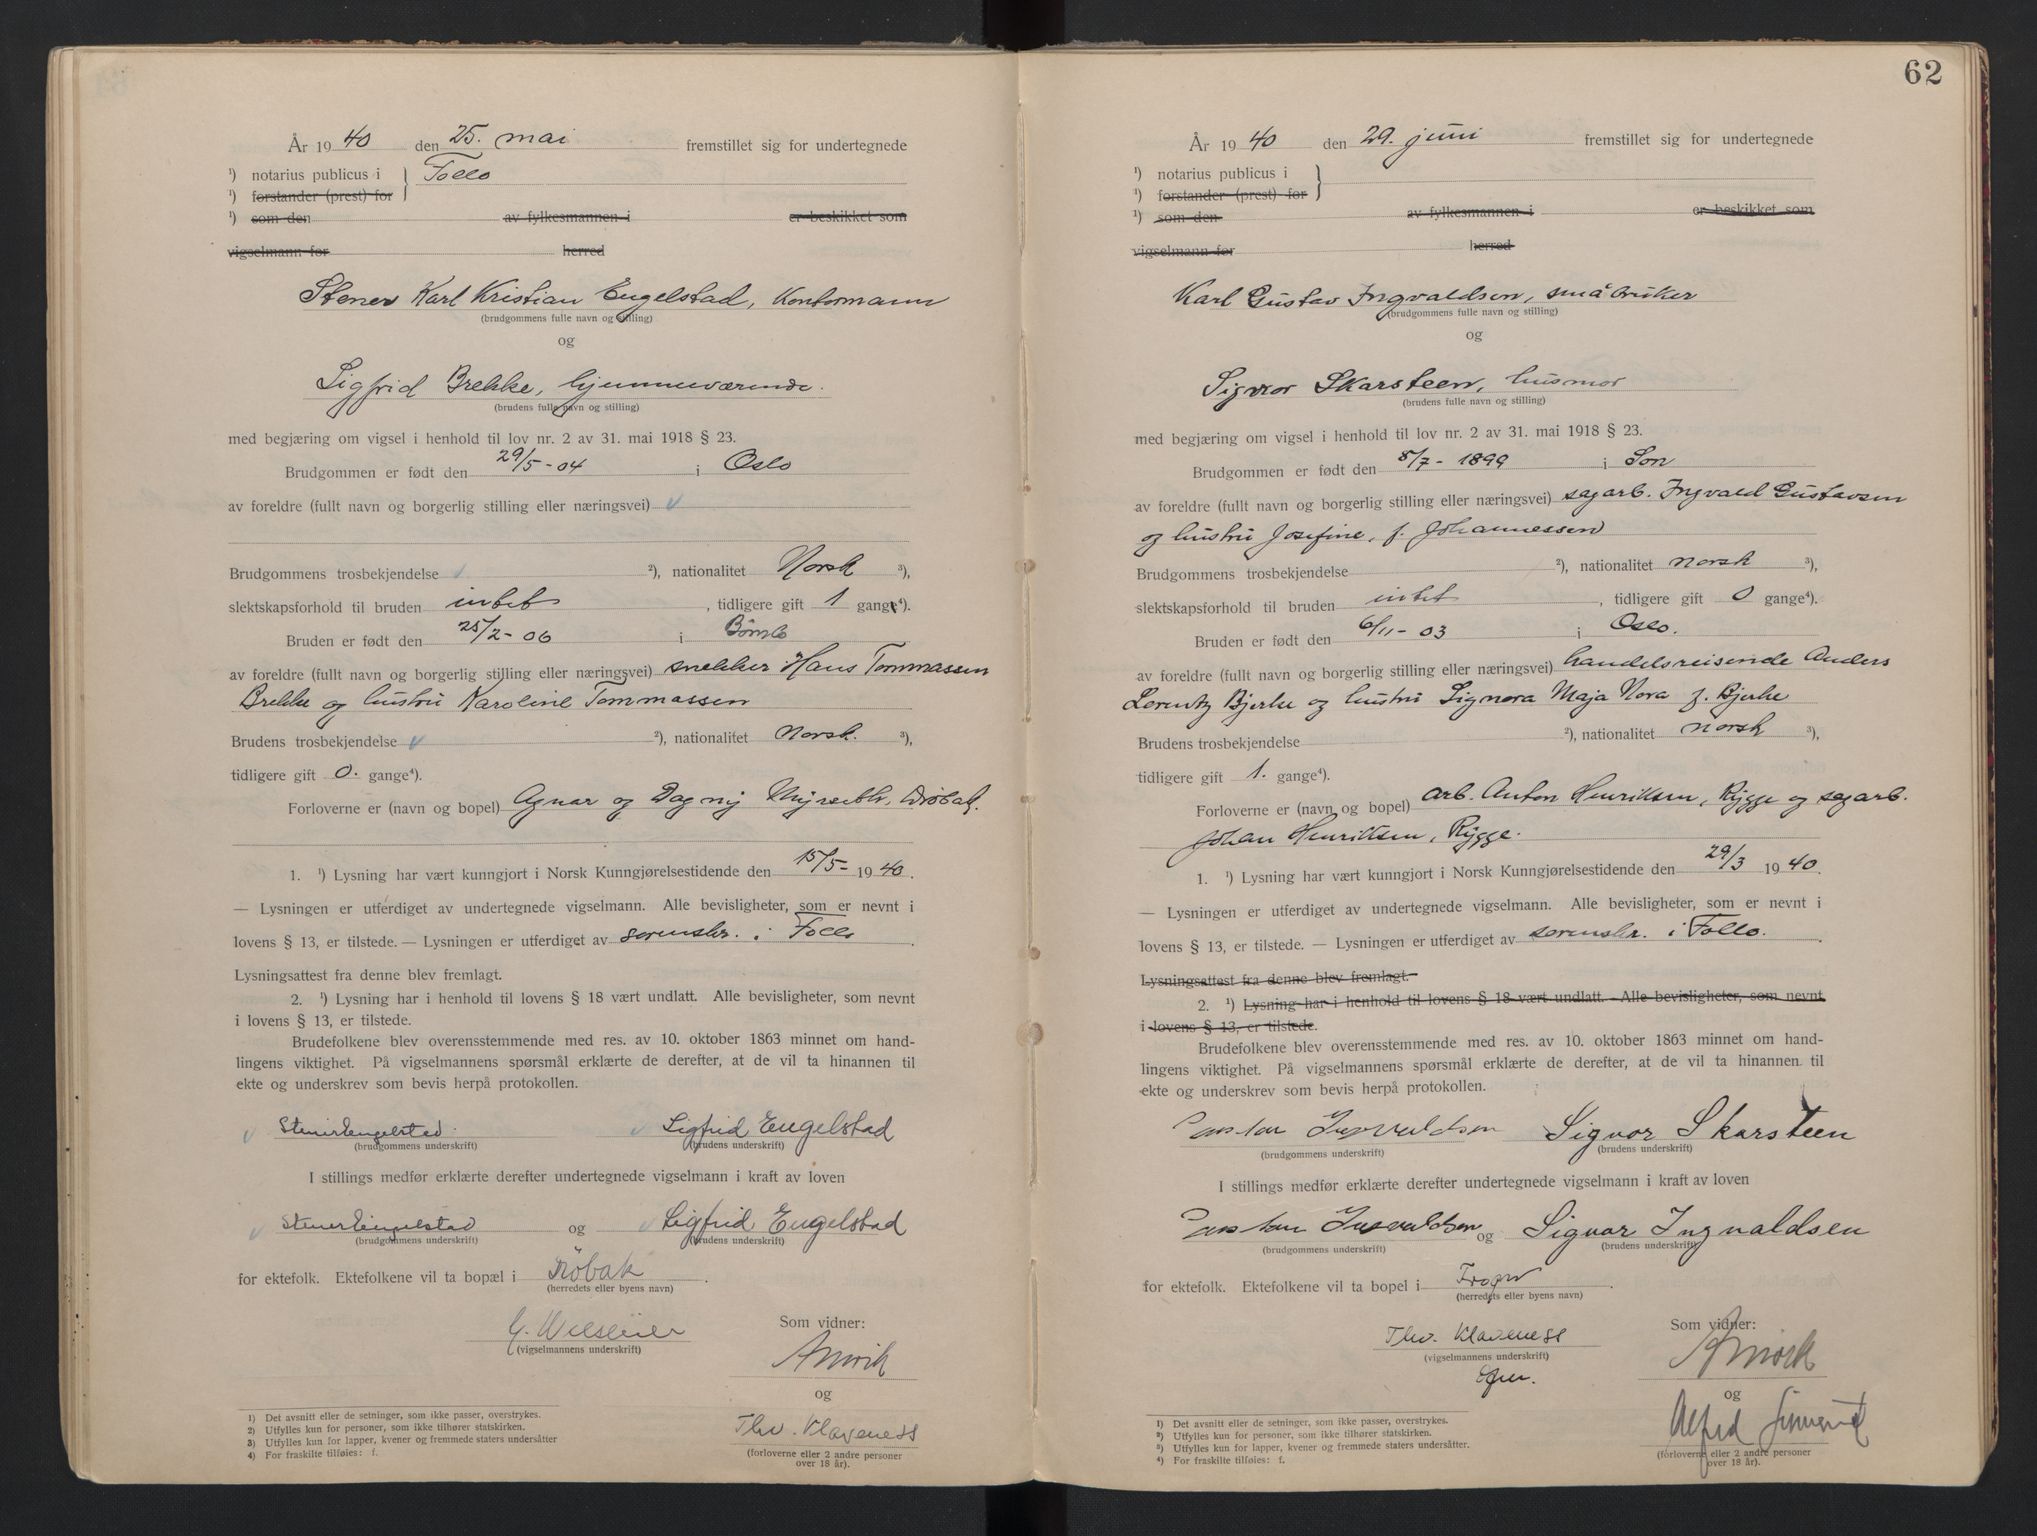 År 1940 den 25. mai fremstillet sig for undertegnede
¹) notarius publicus i } Follo
¹) forstander (prest) for
¹) som den av fylkesmannen i er beskikket som
vigselmann for herred
Stener Karl Kristian Engelstad, Kontormann
(brudgommens fulle navn og stilling)
og
Sigfrid Brekke, hjemmeværende.
(brudens fulle navn og stilling)
med begjæring om vigsel i henhold til lov nr. 2 av 31. mai 1918 § 23.
Brudgommen er født den 29/5-04 i Oslo
av foreldre (fullt navn og borgerlig stilling eller næringsvei)
Brudgommens trosbekjendelse ²), nationalitet Norsk ³),
slektskapsforhold til bruden intet, tidligere gift 1 gang⁴).
Bruden er født den 25/2-06 i Bømlo
av foreldre (fullt navn og borgerlig stilling eller næringsvei) snekker Hans Tommassen
Brekke og hustru Karoline Tommassen
Brudens trosbekjendelse ²), nationalitet Norsk. ³),
tidligere gift 0. gange⁴).
Forloverne er (navn og bopel) Agnar og Dagny Drøbak.
1. ¹) Lysning har vært kunngjort i Norsk Kunngjørelsestidende den 15/5- 1940.
— Lysningen er utferdiget av undertegnede vigselmann. Alle bevisligheter, som er nevnt i
lovens § 13, er tilstede. — Lysningen er utferdiget av sorenskr. i Follo.
Lysningsattest fra denne blev fremlagt.
2. ¹) Lysning har i henhold til lovens § 18 vært undlatt. Alle bevisligheter, som nevnt
i lovens § 13, er tilstede.
Brudefolkene blev overensstemmende med res. av 10. oktober 1863 minnet om hand-
lingens viktighet. På vigselmannens spørsmål erklærte de derefter, at de vil ta hinannen til
ekte og underskrev som bevis herpå protokollen.
Stener Engelstad. Sigfrid Engelstad
(brudgommens underskrift) (brudens underskrift)
I stillings medfør erklærte derefter undertegnede vigselmann i kraft av loven
Stener Engelstad og Sigfrid Engelstad
(brudgommens underskrift) (brudens underskrift)
for ektefolk. Ektefolkene vil ta bopæl i Drøbak.
(herredets eller byens navn)
Som vidner:
(vigselmannens underskrift)
A Mørk
og
Thv. Klaveness
(forloverne eller 2 andre personer
over 18 år).
¹) Det avsnitt eller de setninger, som ikke passer, overstrykes.
²) Utfylles kun for personer, som ikke tilhører statskirken.
³) Utfylles kun for lapper, kvener og fremmede staters undersåtter
⁴) For fraskilte tilføies: f.
62
År 1940 den 29. juni fremstillet sig for undertegnede
¹) notarius publicus i }
¹) forstander (prest) for
¹) som den av fylkesmannen i er beskikket som
vigselmann for herred
Karl Gustav Ingvaldsen, småbruker
(brudgommens fulle navn og stilling)
og
Sigvor Skarsteen, husmor
(brudens fulle navn og stilling)
med begjæring om vigsel i henhold til lov nr. 2 av 31. mai 1918 § 23.
Brudgommen er født den 8/7-1899 i Son
av foreldre (fullt navn og borgerlig stilling eller næringsvei) sagarb. Ingvald Gustavsen
og hustru Josefine, f. Johannessen
Brudgommens trosbekjendelse ²), nationalitet norsk ³),
slektskapsforhold til bruden intet, tidligere gift 0 gange⁴).
Bruden er født den 6/11-03 i Oslo.
av foreldre (fullt navn og borgerlig stilling eller næringsvei) handelsreisende Anders
Lorentz Bjerke og hustru Signora Maja Nora f. Bjerke
Brudens trosbekjendelse ²), nationalitet norsk ³),
tidligere gift 1. gange⁴).
Forloverne er (navn og bopel) arb. Anton Henriksen, Rygge og sagarb.
Johan Henriksen, Rygge.
1. ¹) Lysning har vært kunngjort i Norsk Kunngjørelsestidende den 29/3 1940.
— Lysningen er utferdiget av undertegnede vigselmann. Alle bevisligheter, som er nevnt i
lovens § 13, er tilstede. — Lysningen er utferdiget av sorenskr. i Follo.
Lysningsattest fra denne blev fremlagt.
2. ¹) Lysning har i henhold til lovens § 18 vært undlatt. Alle bevisligheter, som nevnt
i lovens § 13, er tilstede.
Brudefolkene blev overensstemmende med res. av 10. oktober 1863 minnet om hand-
lingens viktighet. På vigselmannens spørsmål erklærte de derefter, at de vil ta hinannen til
ekte og underskrev som bevis herpå protokollen.
Gustav Ingvaldsen Sigvor Skarsteen
(brudgommens underskrift) (brudens underskrift)
I stillings medfør erklærte derefter undertegnede vigselmann i kraft av loven
Gustav Ingvaldsen og Sigvor Ingvaldsen
(brudgommens underskrift) (brudens underskrift)
for ektefolk. Ektefolkene vil ta bopel i Frogn.
(herredets eller byens navn)
Thv. Klaveness Som vidner:
(vigselmannens underskrift)
A Mørk
og
Alfred
(forloverne eller 2 andre personer
over 18 år).
¹) Det avsnitt eller de setninger, som ikke passer, overstrykes.
²) Utfylles kun for personer, som ikke tilhører statskirken.
³) Utfylles kun for lapper, kvener og fremmede staters undersåtter.
⁴) For fraskilte tilføies: f.